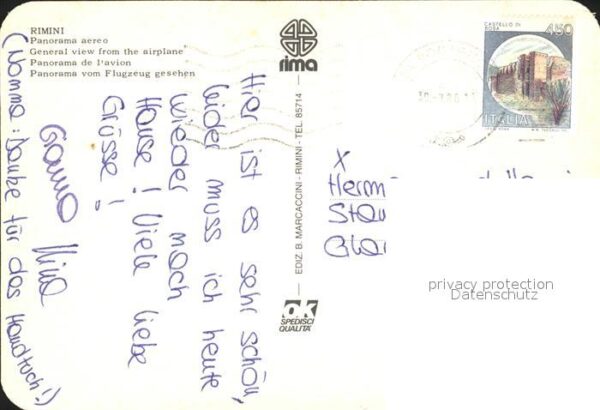 RIMINI
Panorama aereo
General view from the airplane
Panorama de l'avion
Panorama vom Flugzeug gesehen
rima
Hier ist es sehr schön,
leider muss ich heute
wieder nach
Hause! Viele liebe
Grüsse!
(Nomma: Danke für das Handtuch!)
EDIZ. B. MARCACCINI - RIMINI - TEL. 85714
OK
SPEDISCI
QUALITÀ
450
CASTELLO DI
BOSA
ITALIA
X
privacy protection
Datenschutz